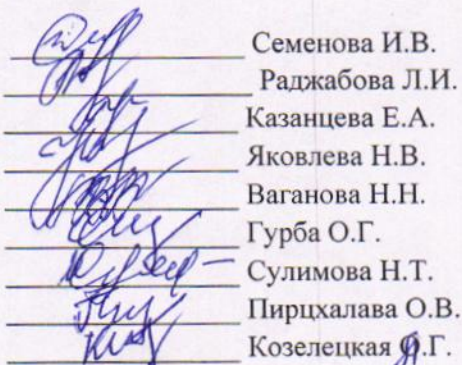 Семенова И.В.
Раджабова Л.И.
Казанцева Е.А.
Яковлева Н.В.
Ваганова Н.Н.
Гурба О.Г.
Сулимова Н.Т.
Пирцхалава О.В.
Козелецкая О.Г.